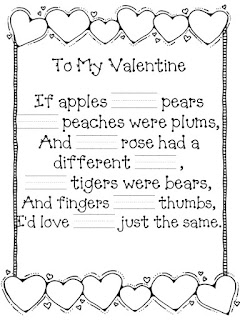 To My Valentine
If apples ______ pears
______ peaches were plums,
And ______ rose had a
different ______ ,
______ tigers were bears,
And fingers ______ thumbs,
I'd love ______ just the same.